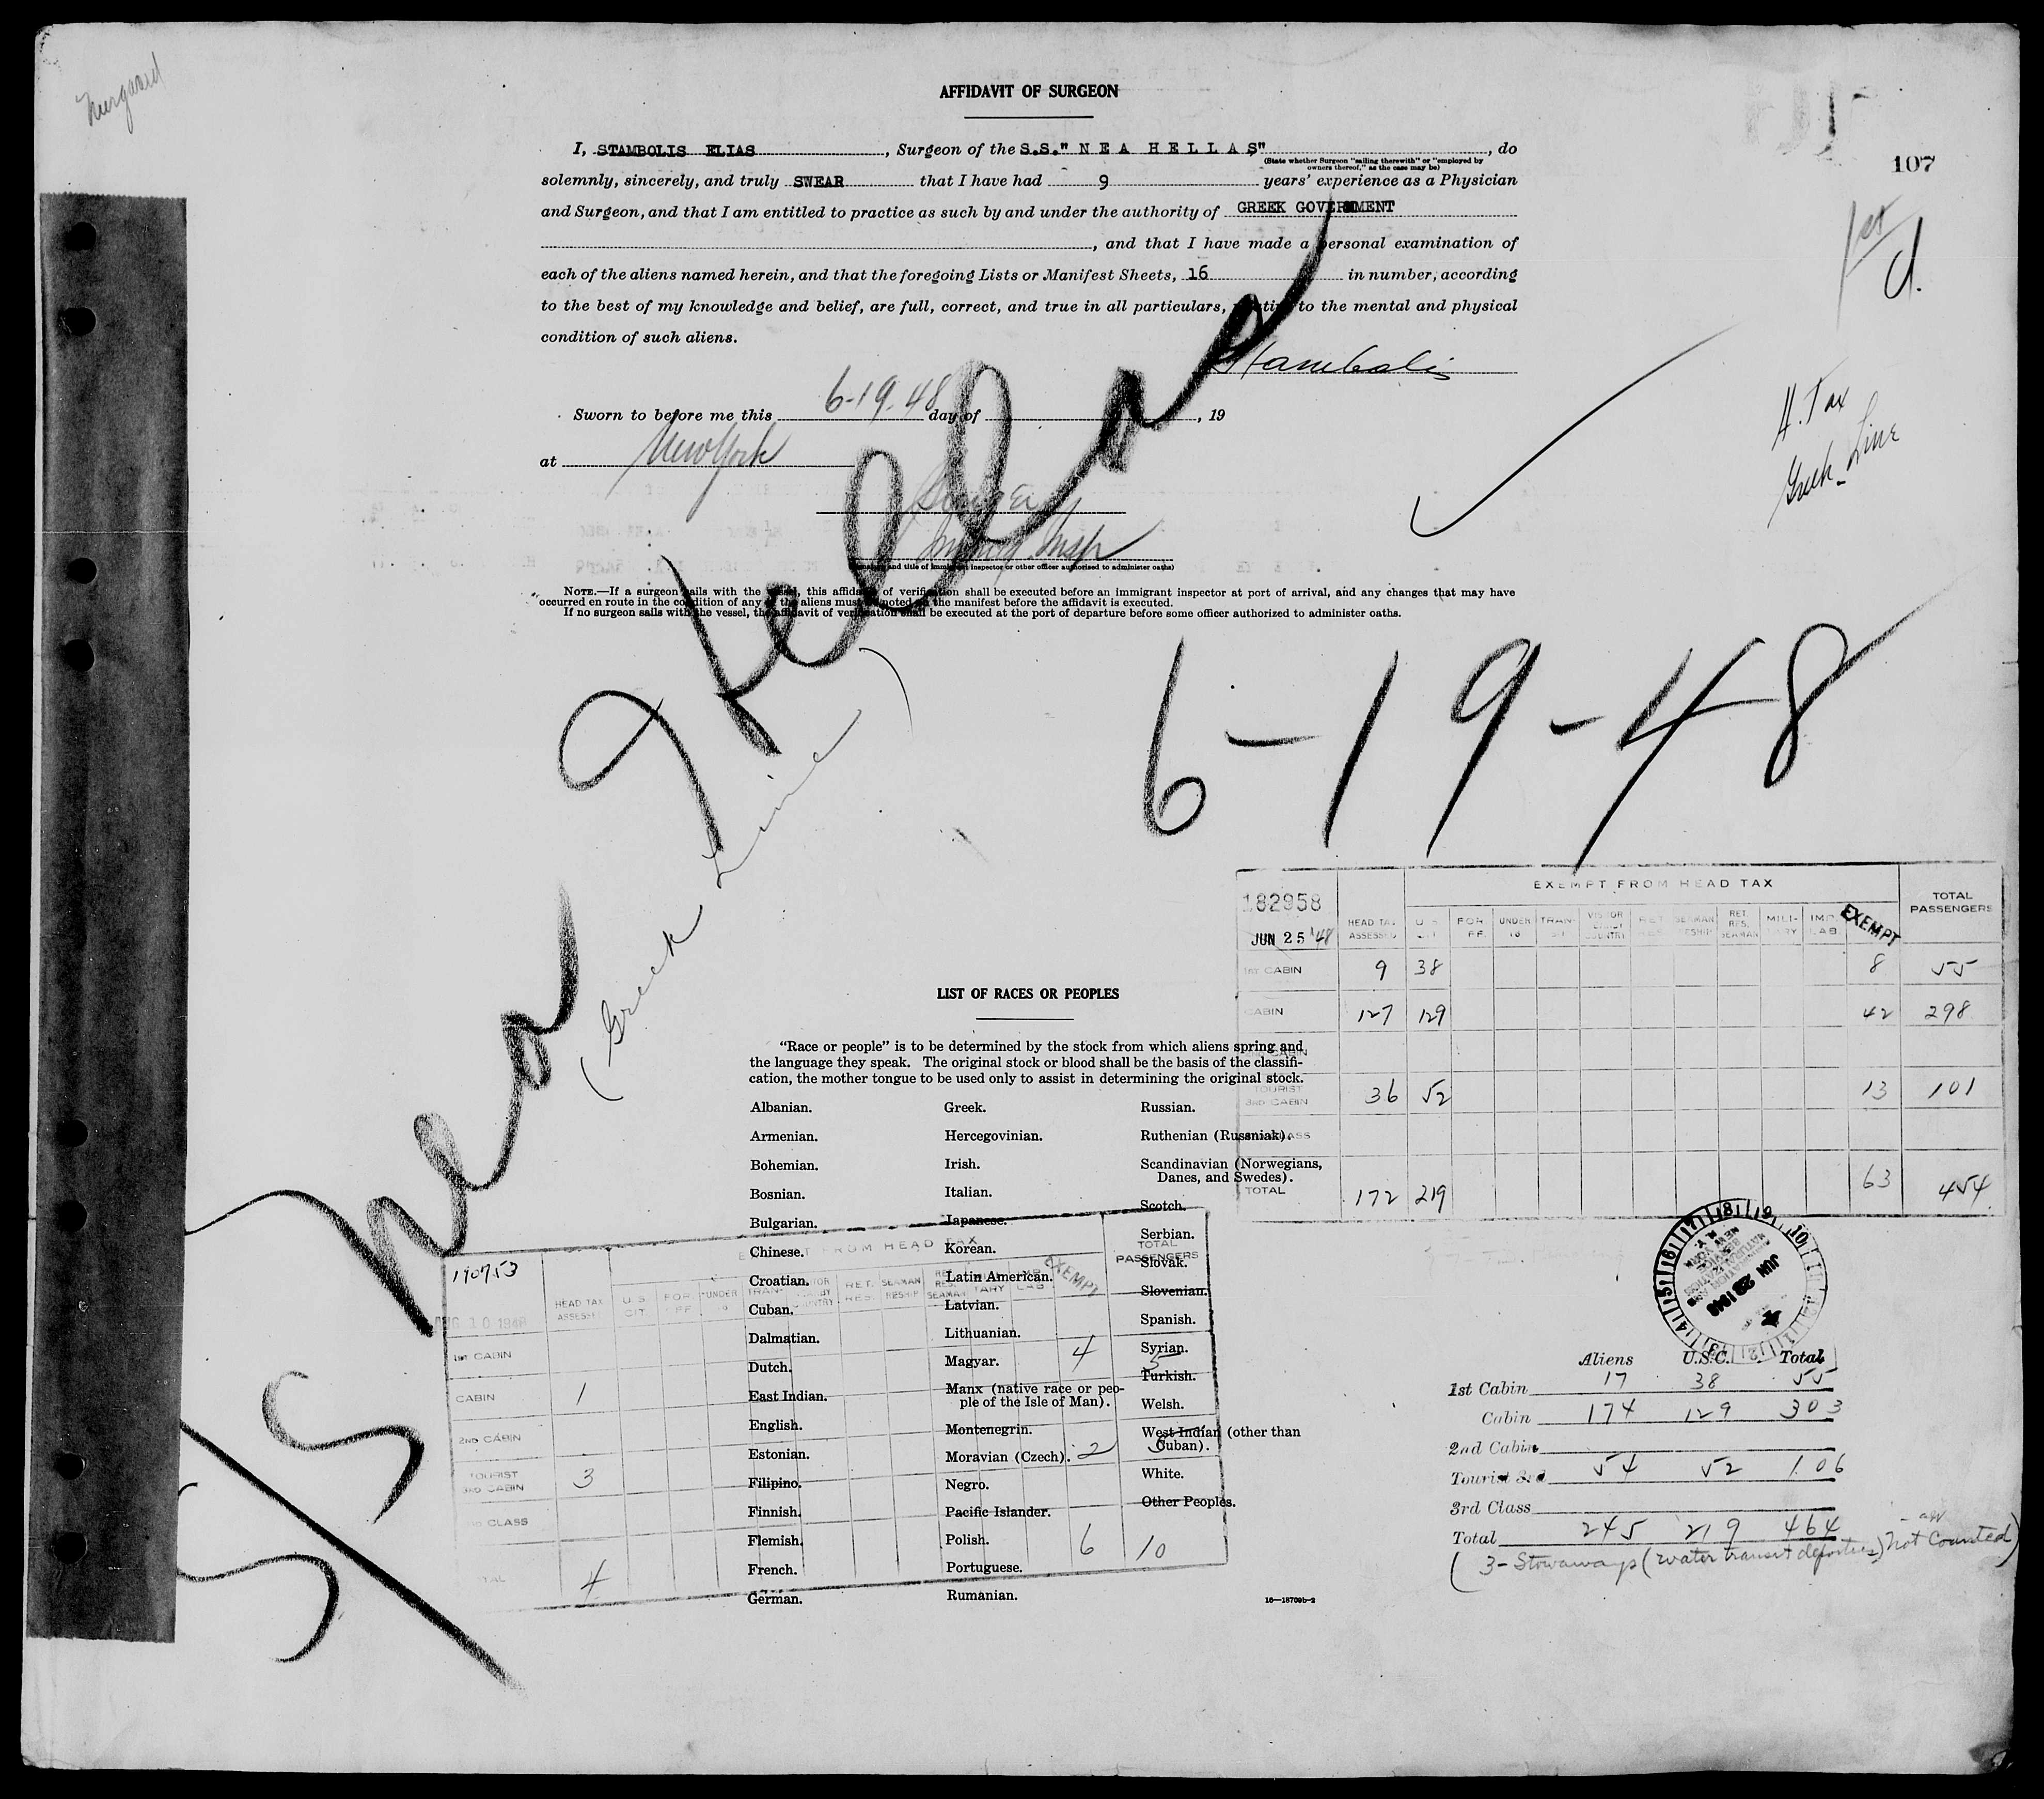 AFFIDAVIT OF SURGEON
107
I, STAMBOLIS ELIAS, Surgeon of the S.S." N E A H E L L A S", do
(State whether Surgeon "sailing therewith" or "employed by
owners thereof," as the case may be)
solemnly, sincerely, and truly SWEAR that I have had 9 years' experience as a Physician
and Surgeon, and that I am entitled to practice as such by and under the authority of GREEK GOVERNMENT
, and that I have made a personal examination of
each of the aliens named herein, and that the foregoing Lists or Manifest Sheets, 16 in number, according
to the best of my knowledge and belief, are full, correct, and true in all particulars, relating to the mental and physical
condition of such aliens.
Stambolis
Sworn to before me this 6-19-48 day of , 19
at New York
Immig. Insp
(Signature and title of immigrant inspector or other officer authorized to administer oaths)
NOTE.—If a surgeon sails with the vessel, this affidavit of verification shall be executed before an immigrant inspector at port of arrival, and any changes that may have
occurred en route in the condition of any of the aliens must be noted on the manifest before the affidavit is executed.
If no surgeon sails with the vessel, the affidavit of verification shall be executed at the port of departure before some officer authorized to administer oaths.
1st
d.
H. Tax
Greek Line
SS Nea Hellas
(Greek Line)
6-19-48
182958
JUN 25 '48
EXEMPT FROM HEAD TAX
HEAD TAX ASSESSED U.S. CIT. FOR. OFF. UNDER 16 TRAN- SIT VISITOR CONTIG. COUNTRY RET. RES. SEAMAN RESHIP RET. RES. SEAMAN MILI- TARY IMP. LAB. EXEMPT TOTAL PASSENGERS
1ST CABIN 9 38 8 55
CABIN 127 129 42 298
2ND CABIN
TOURIST 3RD CABIN 36 52 13 101
3RD CLASS
TOTAL 172 219 63 454
LIST OF RACES OR PEOPLES
"Race or people" is to be determined by the stock from which aliens spring and
the language they speak. The original stock or blood shall be the basis of the classifi-
cation, the mother tongue to be used only to assist in determining the original stock.
Albanian.
Armenian.
Bohemian.
Bosnian.
Bulgarian.
Chinese.
Croatian.
Cuban.
Dalmatian.
Dutch.
East Indian.
English.
Estonian.
Filipino.
Finnish.
Flemish.
French.
German.
Greek.
Hercegovinian.
Irish.
Italian.
Japanese.
Korean.
Latin American.
Latvian.
Lithuanian.
Magyar.
Manx (native race or peo-
ple of the Isle of Man).
Montenegrin.
Moravian (Czech).
Negro.
Pacific Islander.
Polish.
Portuguese.
Rumanian.
Russian.
Ruthenian (Russniak).
Scandinavian (Norwegians,
Danes, and Swedes).
Scotch.
Serbian.
Slovak.
Slovenian.
Spanish.
Syrian.
Turkish.
Welsh.
West Indian (other than
Cuban).
White.
Other Peoples.
16—18709b-2
190753
AUG 10 1948
EXEMPT FROM HEAD TAX
HEAD TAX ASSESSED U.S. CIT. FOR. OFF. UNDER 16 TRAN- RET. RES. SEAMAN RESHIP RET. RES. SEAMAN MILI- TARY IMP. LAB. EXEMPT TOTAL PASSENGERS
1ST CABIN 4 5
CABIN 1
2ND CABIN 2
TOURIST 3RD CABIN 3
3RD CLASS
TOTAL 4 6 10
JUN 23 1948
Aliens U.S.C. Total
1st Cabin 17 38 55
Cabin 174 129 303
2nd Cabin
Tourist 3rd 54 52 106
3rd Class
Total 245 219 464
(3- Stowaways (water transit deportees) not counted)